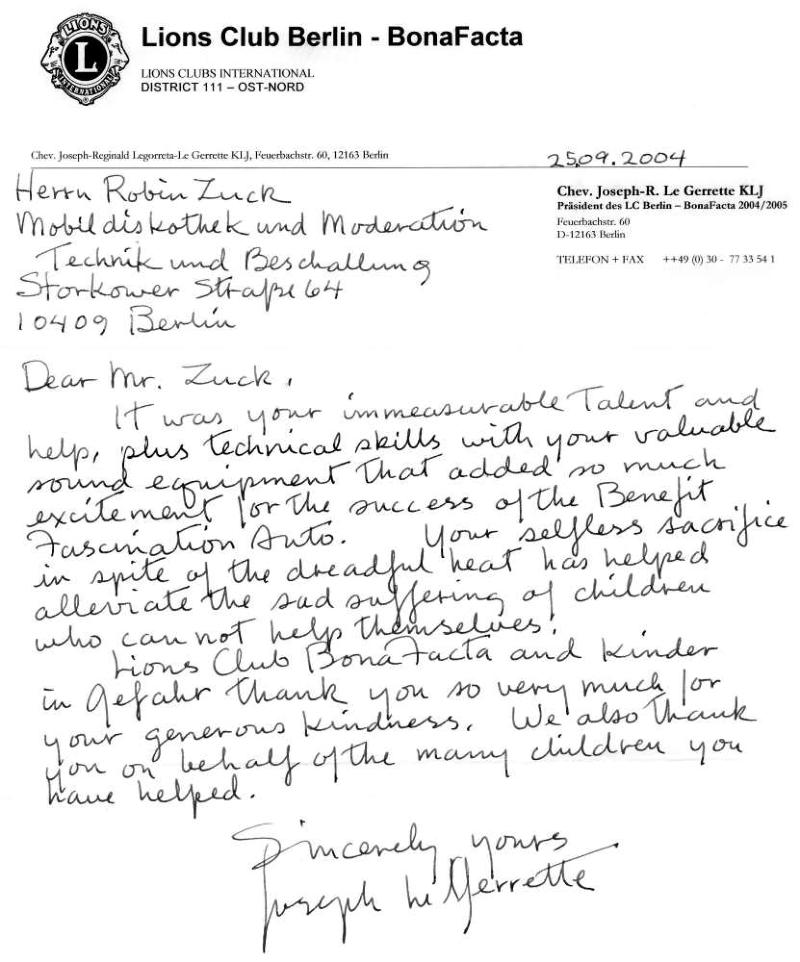 LIONS
L
INTERNATIONAL
Lions Club Berlin - BonaFacta
LIONS CLUBS INTERNATIONAL
DISTRICT 111 – OST-NORD
Chev. Joseph-Reginald Legorreta-Le Gerrette KLJ, Feuerbachstr. 60, 12163 Berlin
25.09.2004
Chev. Joseph-R. Le Gerrette KLJ
Präsident des LC Berlin – BonaFacta 2004/2005
Feuerbachstr. 60
D-12163 Berlin
TELEFON + FAX ++49 (0) 30 - 77 33 54 1
Herrn Robin Zuck
Mobildiskothek und Moderation
Technik und Beschallung
Storkower Straße 64
10409 Berlin
Dear Mr. Zuck,
It was your immeasurable Talent and
help, plus technical skills with your valuable
sound equipment that added so much
excitement for the success of the Benefit
Fascination Auto. Your selfless sacrifice
in spite of the dreadful heat has helped
alleviate the sad suffering of children
who can not help themselves!
Lions Club BonaFacta and Kinder
in Gefahr thank you so very much for
your generous kindness. We also thank
you on behalf of the many children you
have helped.
Sincerely yours
Joseph Le Gerrette